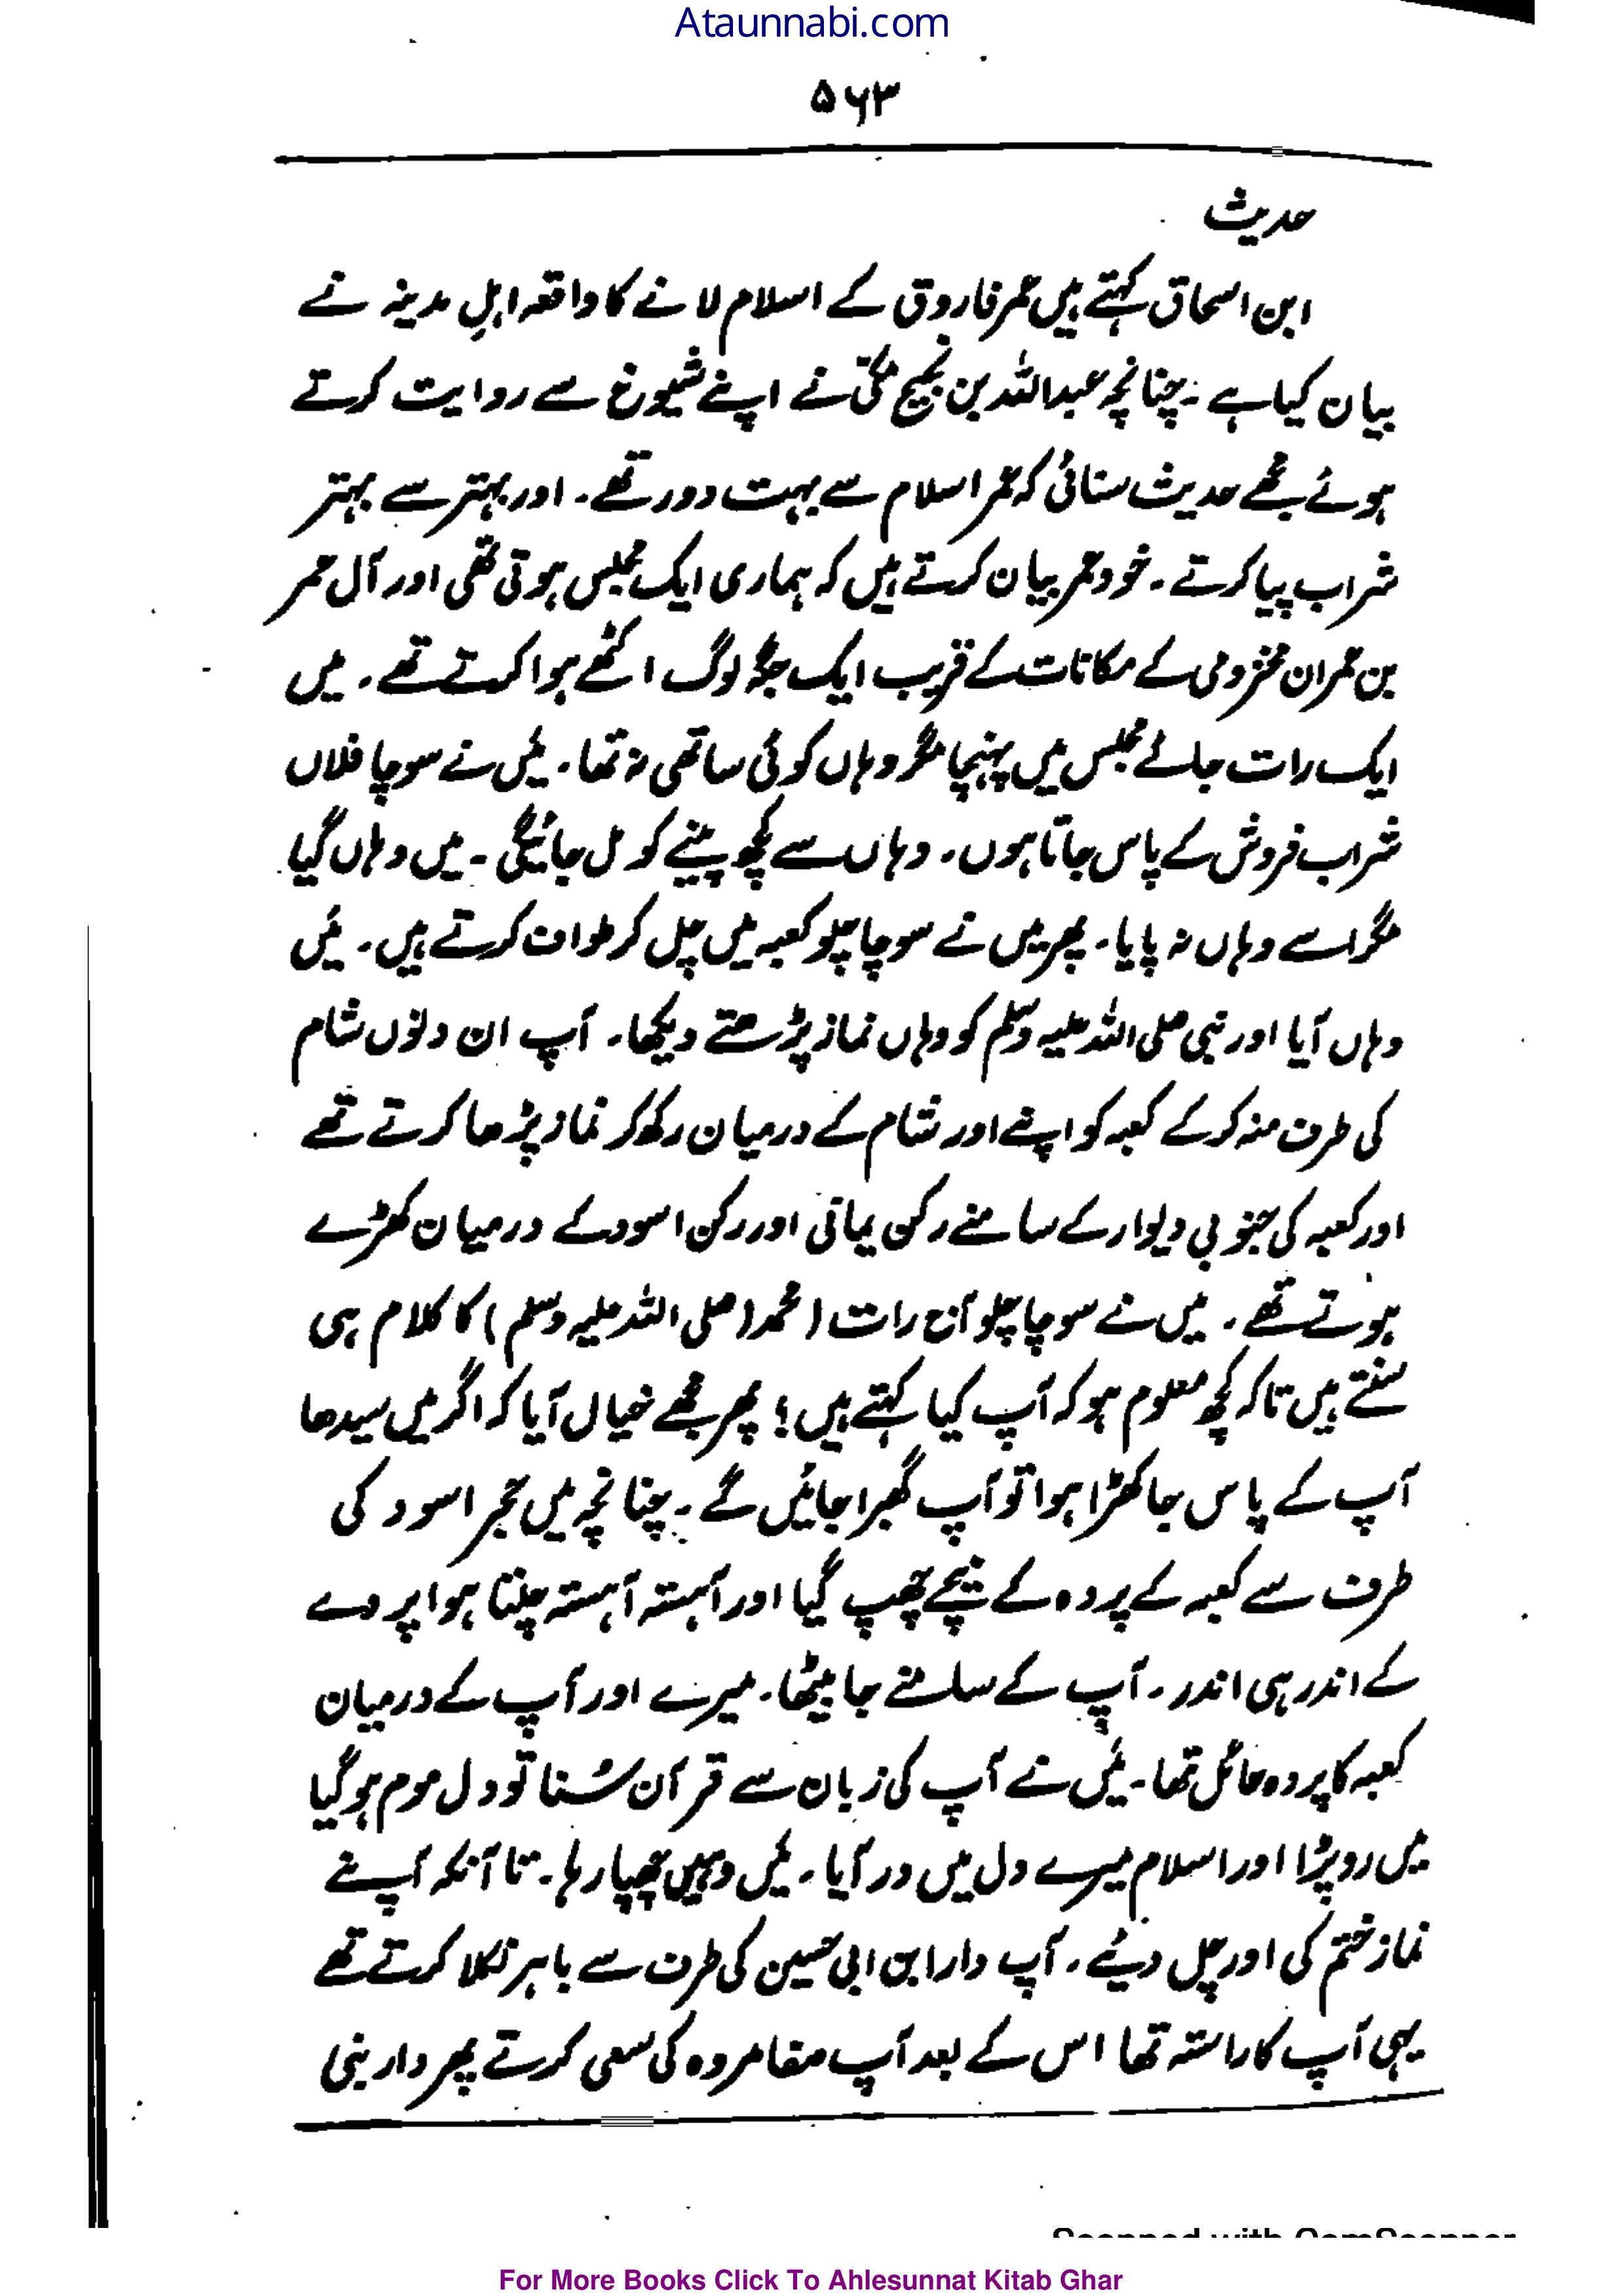 Ataunnabi.com
۵۶۳
حدیث
ابن اسحاق کہتے ہیں عمر فاروق کے اسلام لانے کا واقعہ اہلِ مدینہ نے
بیان کیا ہے ۔ چنانچہ عبداللہ بن نجیح مکی نے اپنے شیوخ سے روایت کرتے
ہوئے مجھے حدیث سنائی کہ عمر اسلام سے بہت دور تھے۔ اور بہتر سے بہتر
شراب پیا کرتے ۔ خود عمر بیان کرتے ہیں کہ ہماری ایک مجلس ہوتی تھی اور آل عمر
بن عمران مخزومی کے مکانات کے قریب ایک جگہ لوگ اکٹھے ہوا کرتے تھے ۔ میں
ایک رات جائے مجلس میں پہنچا مگر وہاں کوئی ساتھی نہ تھا۔ میں نے سوچا فلاں
شراب فروش کے پاس جاتا ہوں۔ وہاں سے کچھ پینے کو مل جائیگی ۔ میں وہاں گیا
مگر اسے وہاں نہ پایا۔ پھر میں نے سوچا چلو کعبہ میں چل کر طواف کرتے ہیں۔ میں
وہاں آیا اور نبی صلی اللہ علیہ وسلم کو وہاں نماز پڑھتے دیکھا۔ آپ ان دنوں شام
کی طرف منہ کر کے کعبہ کو اپنے اور شام کے درمیان رکھ کر نماز پڑھا کرتے تھے
اور کعبہ کی جنوبی دیوار کے سامنے رکن یمانی اور رکن اسود کے درمیان کھڑے
ہوتے تھے ۔ میں نے سوچا چلو آج رات (محمد (صلی اللہ علیہ وسلم) کا کلام ہی
سنتے ہیں تاکہ کچھ معلوم ہو کہ آپ کیا کہتے ہیں؛ پھر مجھے خیال آیا کہ اگر میں سیدھا
آپ کے پاس جا کھڑا ہوا تو آپ گھبرا جائیں گے ۔ چنانچہ میں حجر اسود کی
طرف سے کعبہ کے پردہ کے نیچے چھپ گیا اور آہستہ آہستہ چلتا ہوا پردے
کے اندر ہی اندر ۔ آپ کے سامنے جا بیٹھا۔ میرے اور آپ کے درمیان
کعبہ کا پردہ حائل تھا۔ میں نے آپ کی زبان سے قرآن سُنا تو دل موم ہو گیا
میں رو پڑا اور اسلام میرے دل میں در آیا ۔ میں وہیں چھپا رہا۔ تا آنکہ آپ نے
نماز ختم کی اور چل دیئے ۔ آپ دار ابن ابی حسین کی طرف سے باہر نکلا کرتے تھے
یہی آپ کا راستہ تھا اس کے بعد آپ صفا مروہ کی سعی کرتے پھر دار بنی
Scanned with CamScanner
For More Books Click To Ahlesunnat Kitab Ghar